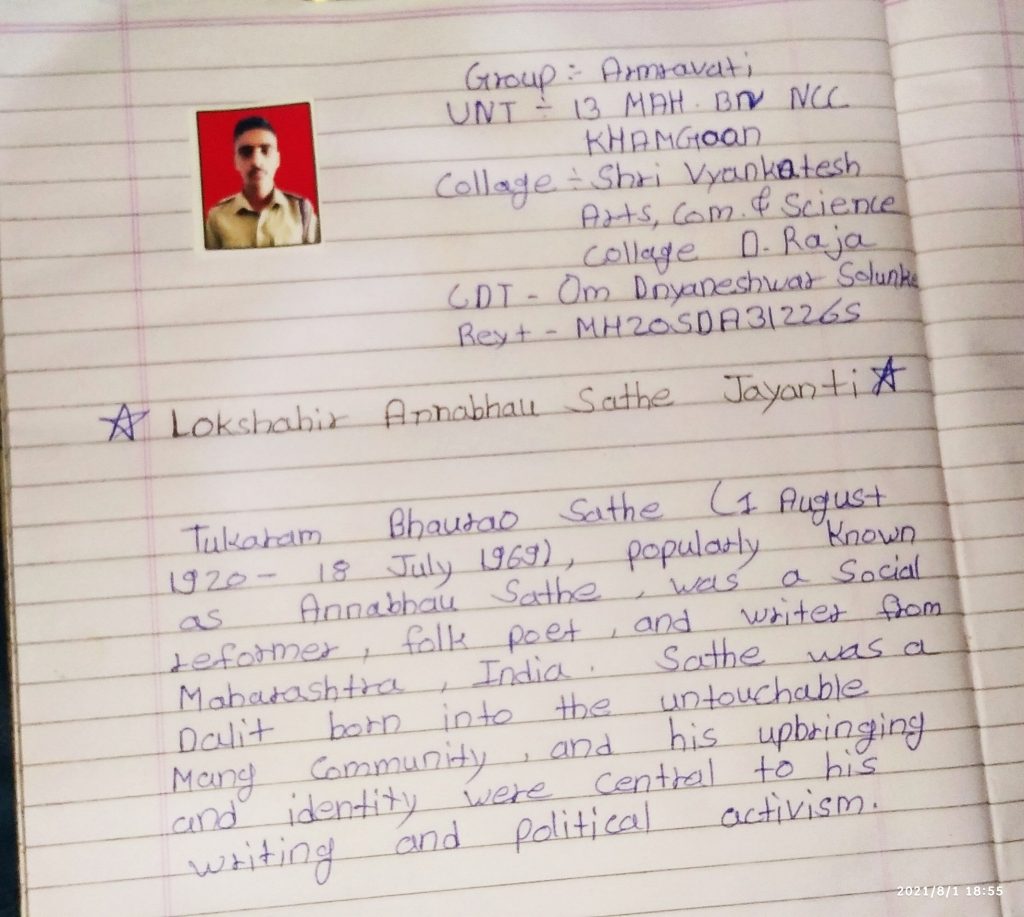 Group :- Armravati
UNT :- 13 MAH. BN NCC
KHAMGaan
Collage :- Shri Vyankatesh
Arts, Com. & Science
Collage D. Raja
CDT - Om Dnyaneshwar Solunke
Reyt - MH20SDA312265
☆ Lokshahir Annabhau Sathe Jayanti ☆
Tukaram Bhaurao Sathe (1 August
1920 - 18 July 1969), popularly known
as Annabhau Sathe, was a Social
reformer, folk poet, and writer from
Maharashtra, India. Sathe was a
Dalit born into the untouchable
Mang Community, and his upbringing
and identity were central to his
writing and political activism.
2021/8/1 18:55